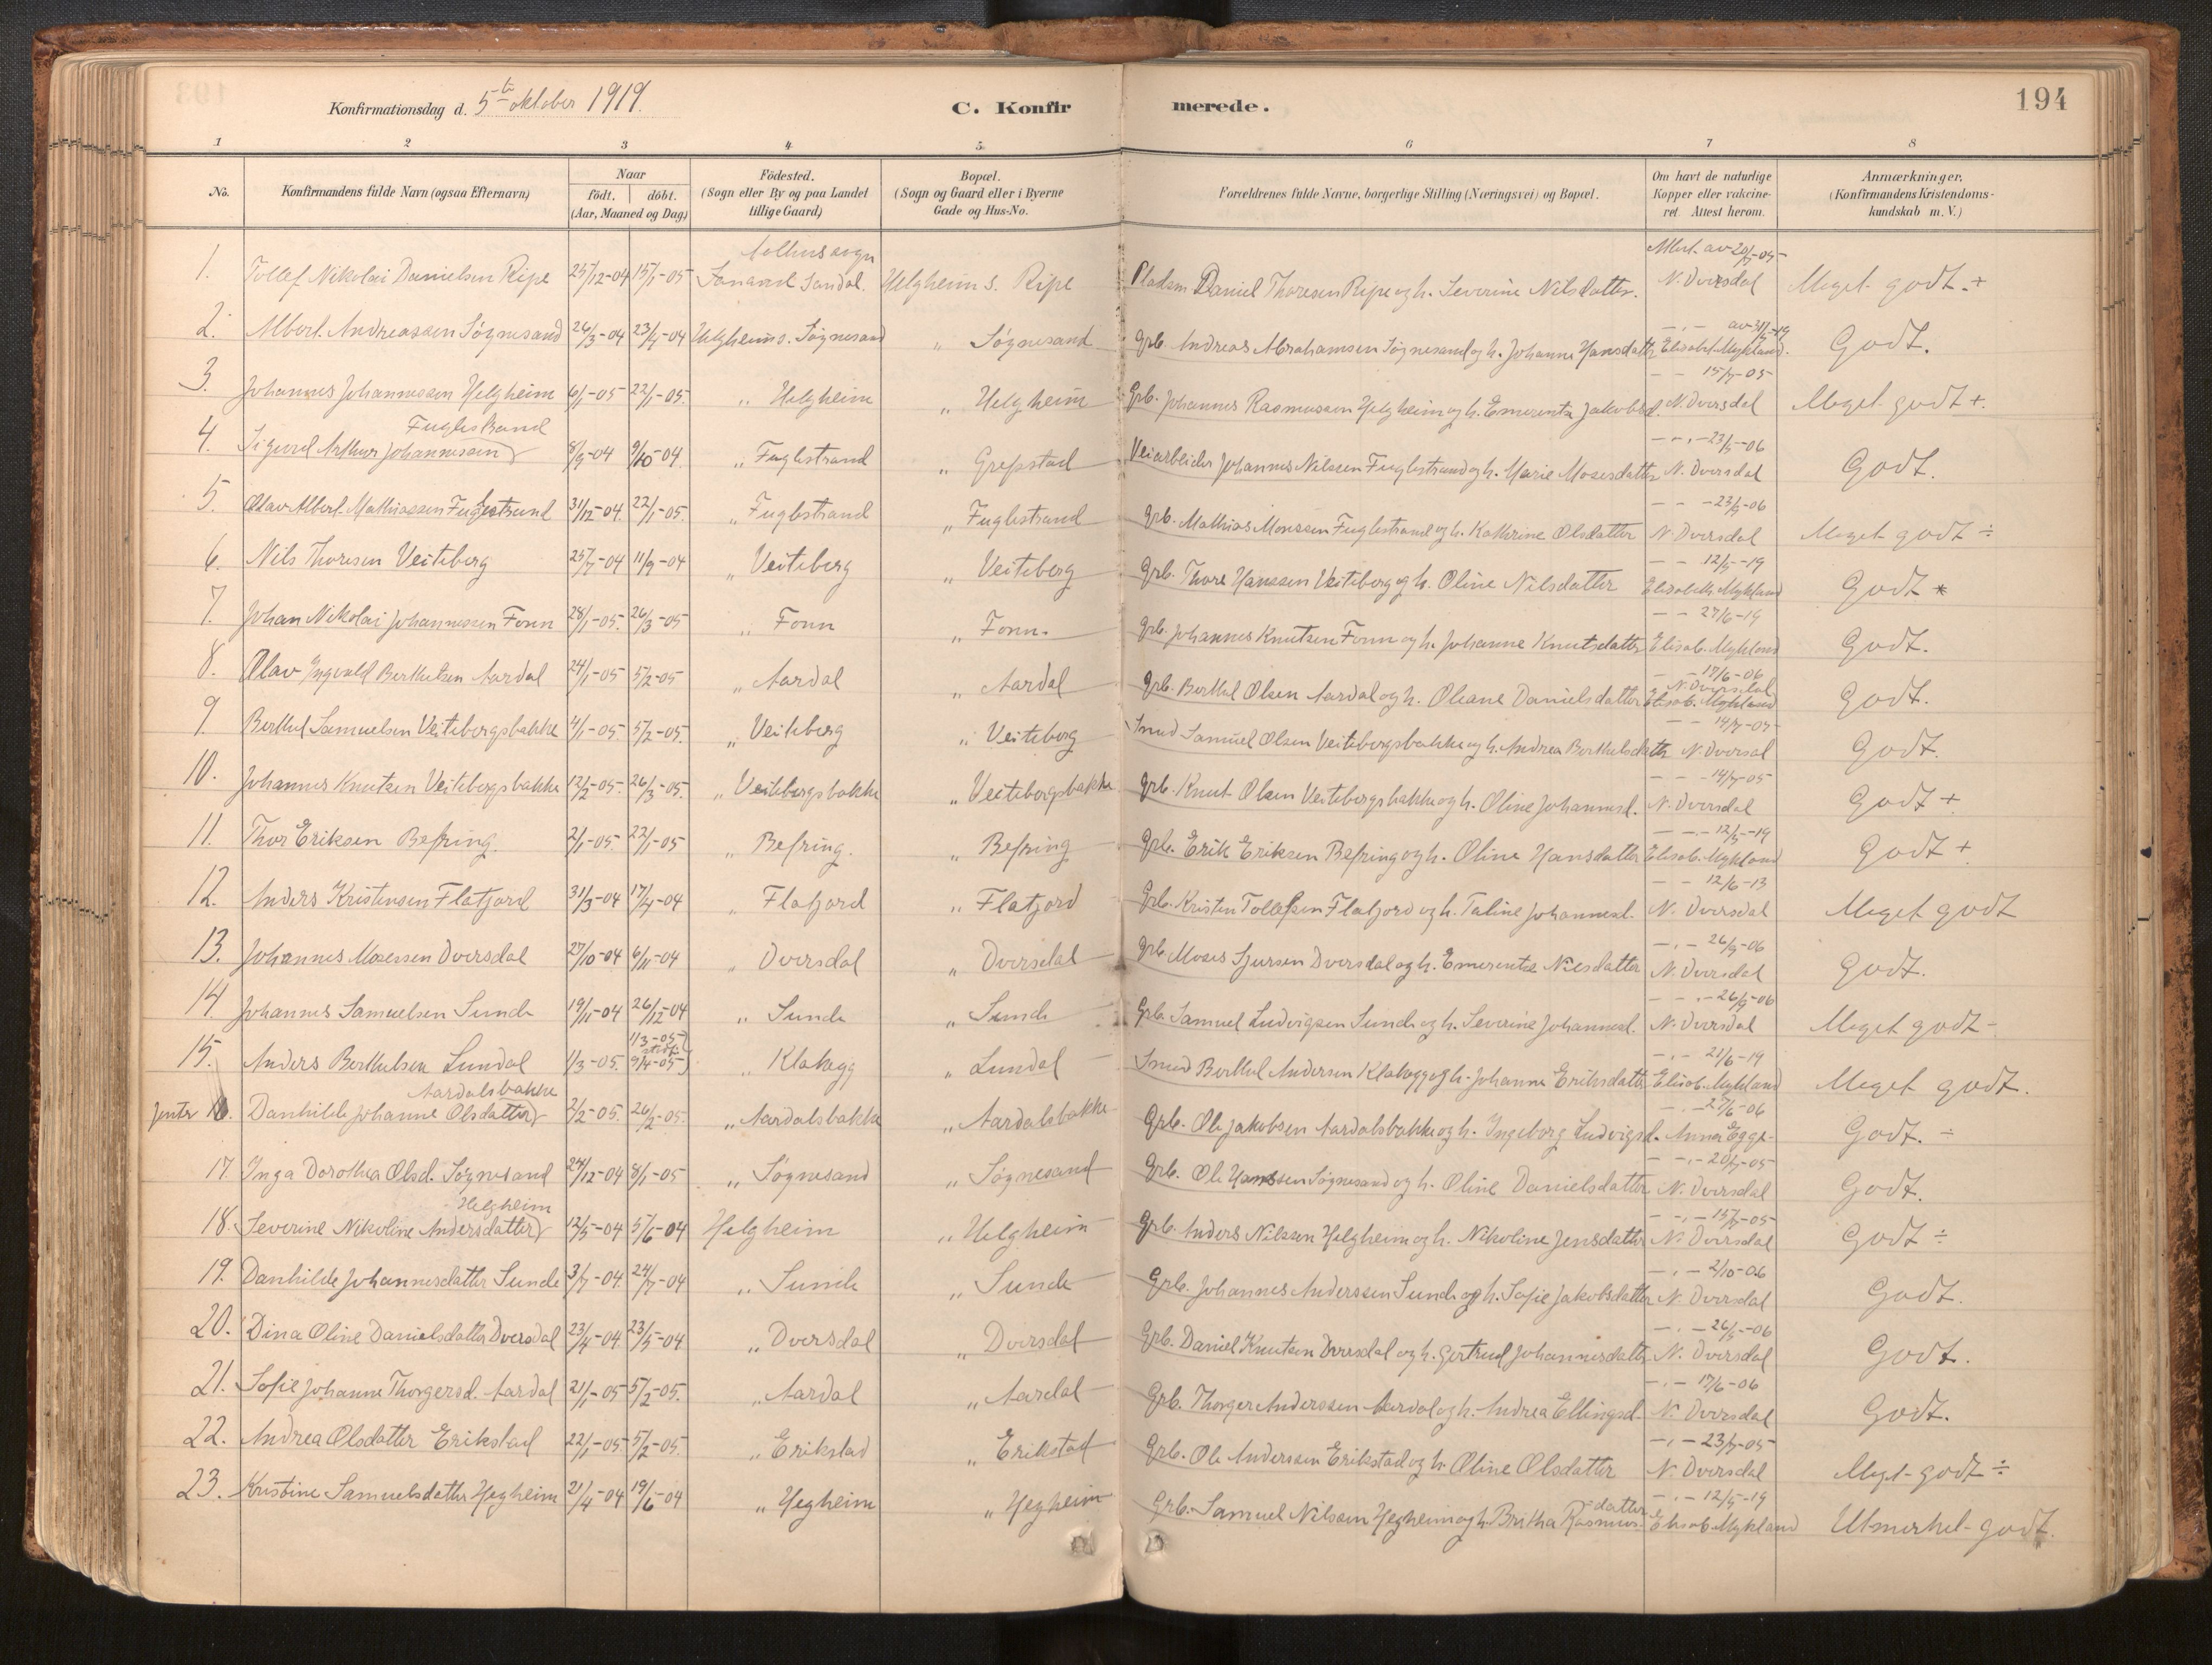 194
Konfirmationsdag d. 5te oktober 1919.
C. Konfirmerede.
1 2 3 4 5 6 7 8
No.
Konfirmandens fulde Navn (ogsaa Efternavn)
Naar
födt. döbt.
(Aar, Maaned og Dag)
Födested.
(Sogn eller By og paa Landet
tillige Gaard)
Bopæl.
(Sogn og Gaard eller i Byerne
Gade og Hus-No.
Forældrenes fulde Navne, borgerlige Stilling (Næringsvei) og Bopæl.
Om havt de naturlige
Kopper eller vakcine-
ret. Attest herom.
Anmærkninger,
(Konfirmandens Kristendoms-
kundskab m. V.)
1. Tollef Nikolai Danielsen Ripe 25/12-04 15/1-05 Sandal. Helgheim s. Ripe Pladsm Daniel Thoresen Ripe og h. Severine Nilsdatter. Attest av 20/7-05 N. Dvergsdal Meget godt +
2. Albert Andreassen Søgnesand 26/3-04 23/4-04 Helgheim s. Søgnesand " Søgnesand Grb. Andreas Abrahamsen Søgnesand og h. Johanne Hansdatter Elisabet Mykland. Godt.
3. Johannes Johannessen Helgheim 6/1-05 22/1-05. " Helgheim " Helgheim Grb. Johannes Rasmussen Helgheim og h. Emerentze Jakobsd. - - 15/7-05 N. Dvorsdal Meget godt +.
4. Sigurd Arthur Johannessen Fuglestrand 8/9-04 9/10-04. " Fuglestrand " Grepstad Veiarbeider Johannes Nilssen Fuglestrand og h. Marie Mosesdatter N. Dvorsdal Godt.
5. Olav Albert Mathiassen Fuglestrand 31/12-04. 22/1-05. " Fuglestrand " Fuglestrand Grb. Mathias Monssen Fuglestrand og h. Kathrine Olsdatter N. Dvorsdal Meget godt ÷
6. Nils Thoresen Veiteberg 25/7-04 11/9-04 " Veiteberg " Veiteberg Grb. Thore Hanssen Veiteberg og h. Oline Nilsdatter - - 12/5-19 Elisabeth Mykland Godt
7. Johan Nikolai Johannessen Fonn 28/1-05. 26/3-05 " Fonn " Fonn. Grb. Johannes Knutsen Fonn og h. Johanne Knutsdatter - - 27/6-19 Elisab. Mykland Godt.
8. Olav Ingvald Berthelsen Aardal 24/1-05 5/2-05 " Aardal " Aardal Grb. Berthel Olsen Aardal og h. Oleane Danielsdatter - - 17/6-06 N. Dvorsdal Elisab. Mykland Godt.
9. Berthel Samuelsen Veitebergsbakke 4/1-05 5/2-05. " Veiteberg " Veiteberg Smed Samuel Olsen Veitebergsbakke og h. Andrea Berthelsdatter - - 14/7-05 N. Dvorsdal Godt.
10. Johannes Knutsen Veitebergsbakke 12/2-05. 26/3-05. " Veitebergsbakke " Veitebergsbakke Grb. Knut Olsen Veitebergsbakke og h. Oline Johannesd. - - 14/7-05 N. Dvorsdal Godt +
11. Thor Eriksen Befring. 2/1-05. 22/1-05 " Befring. " Befring Grb. Erik Eriksen Befring og h. Oline Hansdatter - - 12/5-19 Elisab. Mykland Godt +
12. Anders Kristensen Flatjord 31/3-04 17/4-04 " Flatjord " Flatjord Grb. Kristen Tollefsen Flatjord og h. Taline Johannesd. - - 12/6-13 N. Dvorsdal Meget godt
13. Johannes Mosessen Dvorsdal 27/10-04 6/11-04 " Dvorsdal " Dvorsdal Grb. Moses Sjursen Dvorsdal og h. Emerentze Nilsdatter N. Dvorsdal Godt.
14. Johannes Samuelsen Sunde 19/11-04 26/12-04 " Sunde " Sunde Grb. Samuel Ludvigsen Sunde og h. Severine Johannesd. N. Dvorsdal Meget godt -
15. Anders Berthelsen Lundal 1/3-05. 1/3-05 9/4-05 " Klakegg " Lundal Smed Berthel Andersen Klakegg og h. Johanne Eriksdatter - - 21/6-19 Elisab. Mykland Meget godt.
Jenter 16. Danhilde Johanne Olsdatter Aardalsbakke 2/2-05. 26/2-05. " Aardalsbakke " Aardalsbakke Grb. Ole Jakobsen Aardalsbakke og h. Ingeborg Ludvigsd. - - 27/6-06 Anna Egge- Godt. ÷
17. Inga Dorothea Olsd. Søgnesand 24/12-04 8/1-05 " Søgnesand " Søgnesand Grb. Ole Hanssen Søgnesand og h. Oline Danielsdatter - - 20/7-05 N. Dvorsdal Godt.
18. Severine Nikoline Andersdatter Helgheim 12/5-04 5/6-04 Helgheim " Helgheim Grb. Anders Nilssen Helgheim og h. Nikoline Jensdatter - - 15/7-05 N. Dvorsdal Godt ÷
19. Danhilde Johannesdatter Sunde 3/7-04. 24/7-04 " Sunde " Sunde Grb. Johannes Anderssen Sunde og h. Sofie Jakobsdatter - - 2/10-06 N. Dvorsdal Godt.
20. Dina Oline Danielsdatter Dvorsdal 23/4-04. 23/5-04 " Dvorsdal " Dvorsdal Grb. Daniel Knutsen Dvorsdal og h. Gertrud Johannesdatter N. Dvorsdal Godt.
21. Sofie Johanne Thorgersd. Aardal 21/1-05 5/2-05. " Aardal " Aardal Grb. Thorger Anderssen Aardal og h. Andrea Ellingsd. - - 17/6-06 N. Dvorsdal Godt.
22. Andrea Olsdatter Erikstad 22/1-05 5/2-05. " Erikstad " Erikstad Grb. Ole Anderssen Erikstad og h. Oline Olsdatter - - 23/7-05 N. Dvorsdal Meget godt ÷
23. Kristine Samuelsdatter Hegheim 21/4-04 19/6-04 " Hegheim " Hegheim Grb. Samuel Nilssen Hegheim og h. Britha Rasmusdatter - - 12/5-19 Elisab. Mykland Utmerket godt.